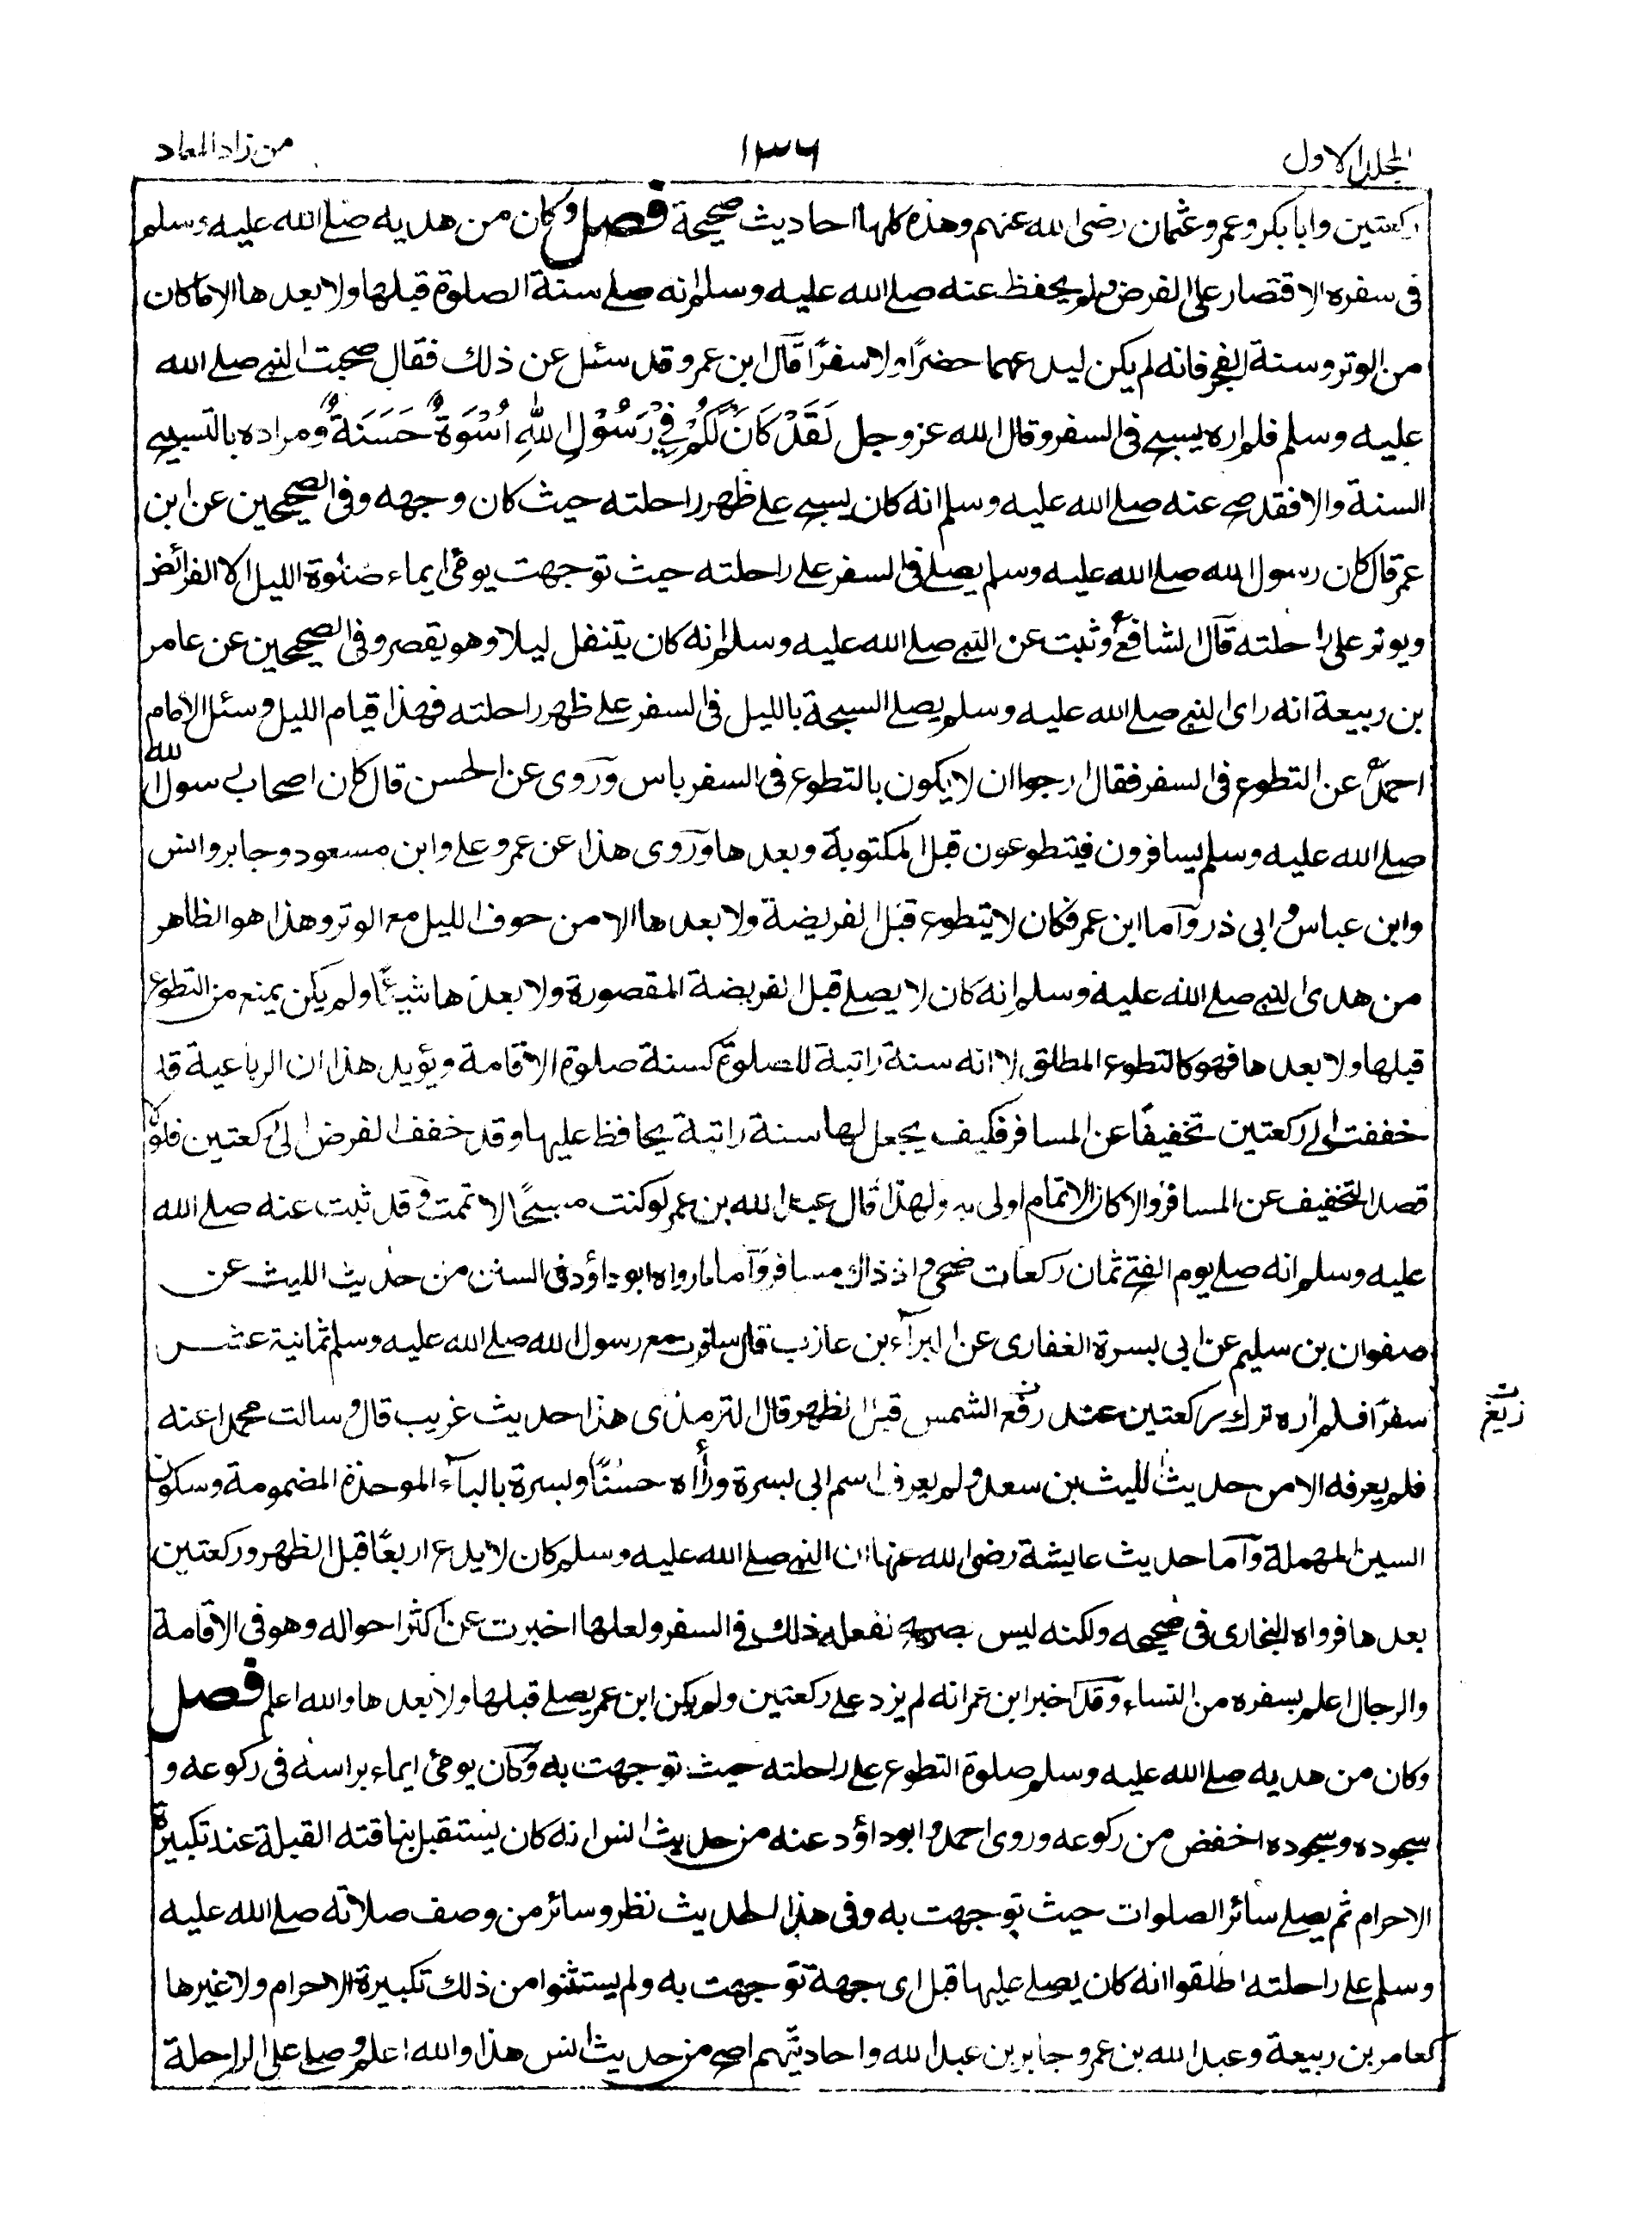 المجلد الاول ١٣٦ من زاد المعاد
ركعتين وابا بكر وعمر وعثمان رضى الله عنهم وهذه كلها احاديث صحيحة فصل وكان من هديه صلى الله عليه وسلم
فى سفره الاقتصار على الفرض ولم يحفظ عنه صلى الله عليه وسلم انه صلى سنة الصلوة قبلها ولا بعدها الا ما كان
من الوتر وسنة الفجر فانه لم يكن ليدعهما حضرًا ولا سفرًا قال ابن عمر وقد سئل عن ذلك فقال صحبت النبى صلى الله
عليه وسلم فلم اره يسبح فى السفر وقال الله عز وجل لَقَدْ كَانَ لَكُمْ فِيْ رَسُوْلِ اللهِ اُسْوَةٌ حَسَنَةٌ ومراده بالتسبيح
السنة والا فقد صح عنه صلى الله عليه وسلم انه كان يسبح على ظهر راحلته حيث كان وجهه وفى الصحيحين عن ابن
عمر قال كان رسول الله صلى الله عليه وسلم يصلى فى السفر على راحلته حيث توجهت يومئ ايماء صلوة الليل الا الفرائض
ويوتر على راحلته قال الشافعى وثبت عن النبى صلى الله عليه وسلم انه كان يتنفل ليلا وهو يقصر وفى الصحيحين عن عامر
بن ربيعة انه راى النبى صلى الله عليه وسلم يصلى السبحة بالليل فى السفر على ظهر راحلته فهذا قيام الليل وسئل الامام
احمد عن التطوع فى السفر فقال ارجو ان لا يكون بالتطوع فى السفر باس وروى عن الحسن قال كان اصحاب رسول الله
صلى الله عليه وسلم يسافرون فيتطوعون قبل المكتوبة وبعدها وروى هذا عن عمر وعلى وابن مسعود وجابر وانس
وابن عباس وابى ذر واما ابن عمر فكان لا يتطوع قبل الفريضة ولا بعدها الا من جوف الليل مع الوتر وهذا هو الظاهر
من هدى النبى صلى الله عليه وسلم انه كان لا يصلى قبل الفريضة المقصورة ولا بعدها شيئًا ولم يكن يمنع من التطوع
قبلها ولا بعدها فهو كالتطوع المطلق لا انه سنة راتبة للصلوة كسنة صلوة الاقامة ويؤيد هذا ان الرباعية قد
خففت الى ركعتين تخفيفًا عن المسافر فكيف يجعل لها سنة راتبة يحافظ عليها وقد خفف الفرض الى ركعتين فلولا
قصد التخفيف عن المسافر والا كان الاتمام اولى به ولهذا قال عبد الله بن عمر لو كنت مسبحًا لاتممت وقد ثبت عنه صلى الله
عليه وسلم انه صلى يوم الفتح ثمان ركعات ضحى واذ ذاك مسافر واما ما رواه ابو داؤد فى السنن من حديث الليث عن
صفوان بن سليم عن ابى بسرة الغفارى عن البرآء بن عازب قال سافرت مع رسول الله صلى الله عليه وسلم ثمانية عشر
سفرًا فلم اره ترك ركعتين عند رفع الشمس قبل الظهر قال الترمذى هذا حديث غريب قال وسالت محمدا عنه
فلم يعرفه الا من حديث الليث بن سعد ولم يعرف اسم ابى بسرة ورأاه حسنًا وبسرة بالبآء الموحدة المضمومة وسكون
السين المهملة واما حديث عايشة رضى الله عنها ان النبى صلى الله عليه وسلم كان لا يدع اربعًا قبل الظهر وركعتين
بعدها فرواه البخارى فى صحيحه ولكنه ليس بصريح نفعله ذلك فى السفر ولعلها اخبرت عن اكثر احواله وهو فى الاقامة
والرجال اعلم بسفره من النساء وقد اخبر ابن عمر انه لم يزد على ركعتين ولم يكن ابن عمر يصلى قبلها ولا بعدها والله اعلم فصل
وكان من هديه صلى الله عليه وسلم صلوة التطوع على راحلته حيث توجهت به وكان يومئ ايماء براسه فى ركوعه و
سجوده وسجوده اخفض من ركوعه وروى احمد وابو داؤد عنه من حديث انس انه كان يستقبل بناقته القبلة عند تكبيرة
الاحرام ثم يصلى سائر الصلوات حيث توجهت به وفى هذا الحديث نظر وسائر من وصف صلاته صلى الله عليه
وسلم على راحلته اطلقوا انه كان يصلى عليها قبل اى جهة توجهت به ولم يستثنوا من ذلك تكبيرة الاحرام ولا غيرها
كعامر بن ربيعة وعبد الله بن عمر وجابر بن عبد الله واحاديثهم اصح من حديث انس هذا والله اعلم وصلى على الراحلة